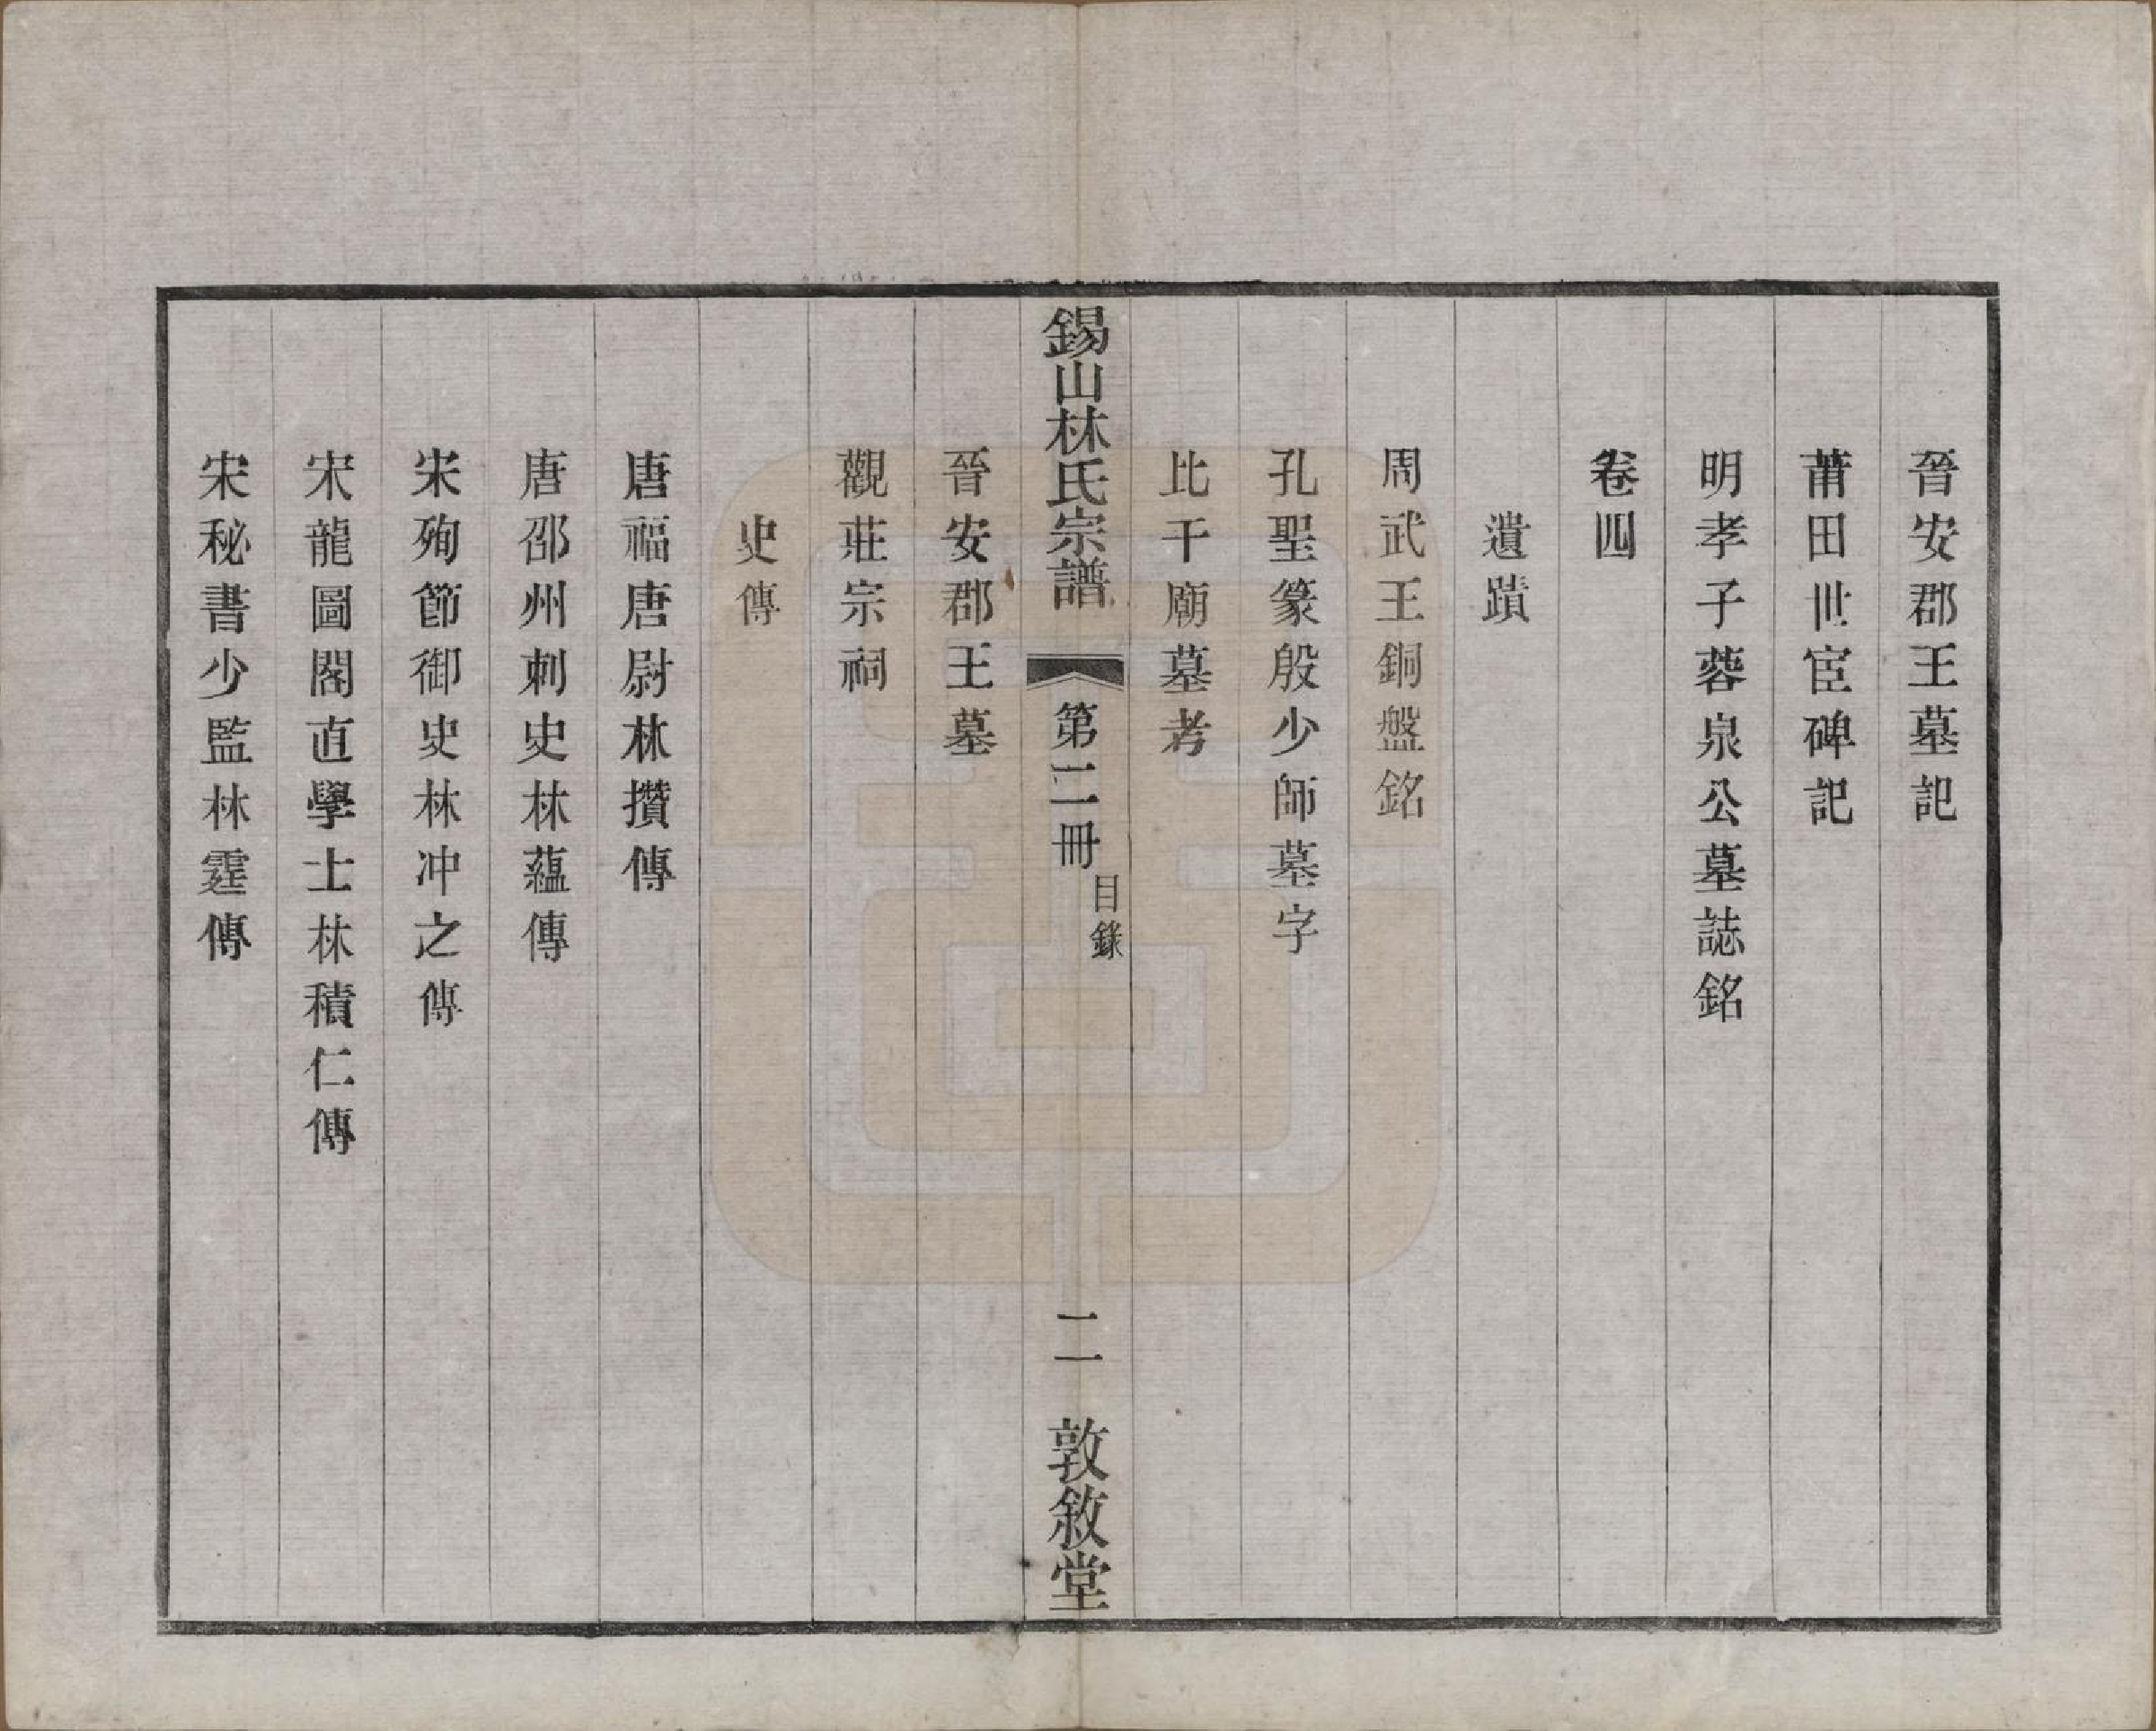 晉安郡王墓記
莆田世宦碑記
明孝子蓉泉公墓誌銘
卷四
遺蹟
周武王銅盤銘
孔聖篆殷少師墓字
比干廟墓考
錫山林氏宗譜
第二冊
目錄
二
敦敘堂
晉安郡王墓
觀莊宗祠
史傳
唐福唐尉林攢傳
唐邵州刺史林蘊傳
宋殉節御史林冲之傳
宋龍圖閣直學士林積仁傳
宋秘書少監林霆傳